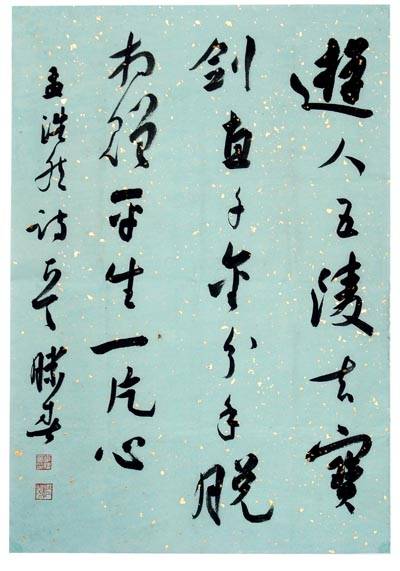 遊人五陵去寶
劍直千金分手脫
相贈平生一片心
孟浩然诗